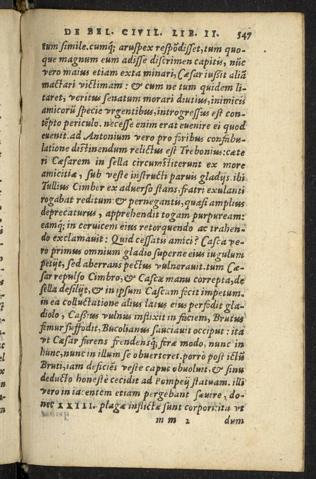 DE BEL. CIVIL. LIB. II. 547
tum simile. cumq́; aruspex respōdisset, tum quo-
que magnum eum adisse discrimen capitis, nūc
vero maius etiam exta minari, Cæsar iussit aliā
mactari victimam: & cum ne tum quidem li-
taret, veritus senatum morari diutius, inimicis
amicorū specie vrgentibus, introgressus est con-
tēpto periculo. necesse enim erat euenire ei quod
euenit. ad Antonium vero pro foribus confabu-
latione distinendum relictus est Trebonius: cæte
ri Cæsarem in sella circumstiterunt ex more
amicitiæ, sub veste instructi paruis gladijs. ibi
Tullius Cimber ex aduerso stans, fratri exulanti
rogabat reditum: & pernegantis, quasi amplius
deprecaturus, apprehendit togam purpuream:
eamq́; in ceruicem eius retorquendo ac trahen-
do exclamauit: Quid cessatis amici? Casca ve-
ro primus omnium gladio superne eius iugulum
petijt, sed aberrans pectus vulnerauit. tum Cæ-
sar repulso Cimbro, & Cascæ manu correpta, de
sella desilijt, & in ipsum Cascam fecit impetum.
in ea colluctatione alius latus eius perfodit gla-
diolo, Cassius vulnus inflixit in faciem, Brutus
femur suffodit, Bucolianus sauciauit occiput: ita
vt Cæsar furens frendensq́; feræ modo, nunc in
hunc, nunc in illum se obuerteret. porrò post ictū
Bruti, iam deficiēs veste caput obuoluit, & sinu
deducto honestè cecidit ad Pompeij statuam. illi
vero in iacentem etiam pergebant sæuire, do-
nec XXIII. plagæ inflictæ sunt corpori: ita vt
m m 2 dum